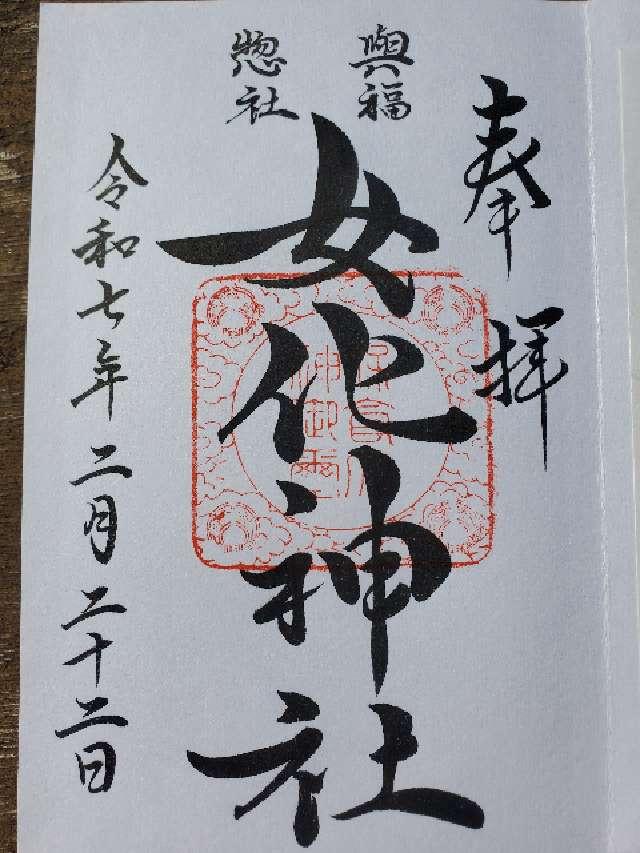 奉拝
興福
惣社
女化神社
令和七年二月二十二日